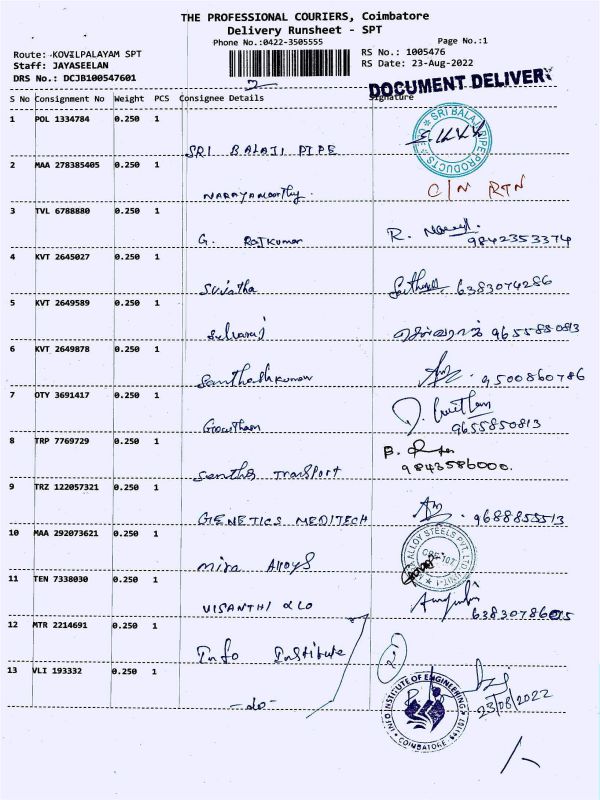 THE PROFESSIONAL COURIERS, Coimbatore
Delivery Runsheet - SPT
Phone No.:0422-3505555 Page No.:1
Route: KOVILPALAYAM SPT RS No.: 1005476
Staff: JAYASEELAN RS Date: 23-Aug-2022
DRS No.: DCJB100547601
DOCUMENT DELIVERY
S No Consignment No Weight PCS Consignee Details Signature
1 POL 1334784 0.250 1
SRI BALAJI PIPE
SRI BALAJI PIPE PRODUCTS
2 MAA 278385405 0.250 1
Narayanamoorthy. C/N RTN
3 TVL 6788880 0.250 1
G. Rajkumar R. 9842353374
4 KVT 2645027 0.250 1
Suvatha 6383074286
5 KVT 2649589 0.250 1
Selvaraj செல்வராஜ் 9655850813
6 KVT 2649878 0.250 1
Santhoshkumar 9500860786
7 OTY 3691417 0.250 1
Gowtham 9655850813
8 TRP 7769729 0.250 1
Transport 9843586000.
9 TRZ 122057321 0.250 1
GENETICS MEDITECH 9688855513
10 MAA 292073621 0.250 1
Mira Alloys
ALLOY STEELS PVT. LTD. UNIT-1
11 TEN 7338030 0.250 1
6383078605
12 MTR 2214691 0.250 1
Info Institute
13 VLI 193332 0.250 1
-do-
INFO INSTITUTE OF ENGINEERING
COIMBATORE 641107
23/08/2022